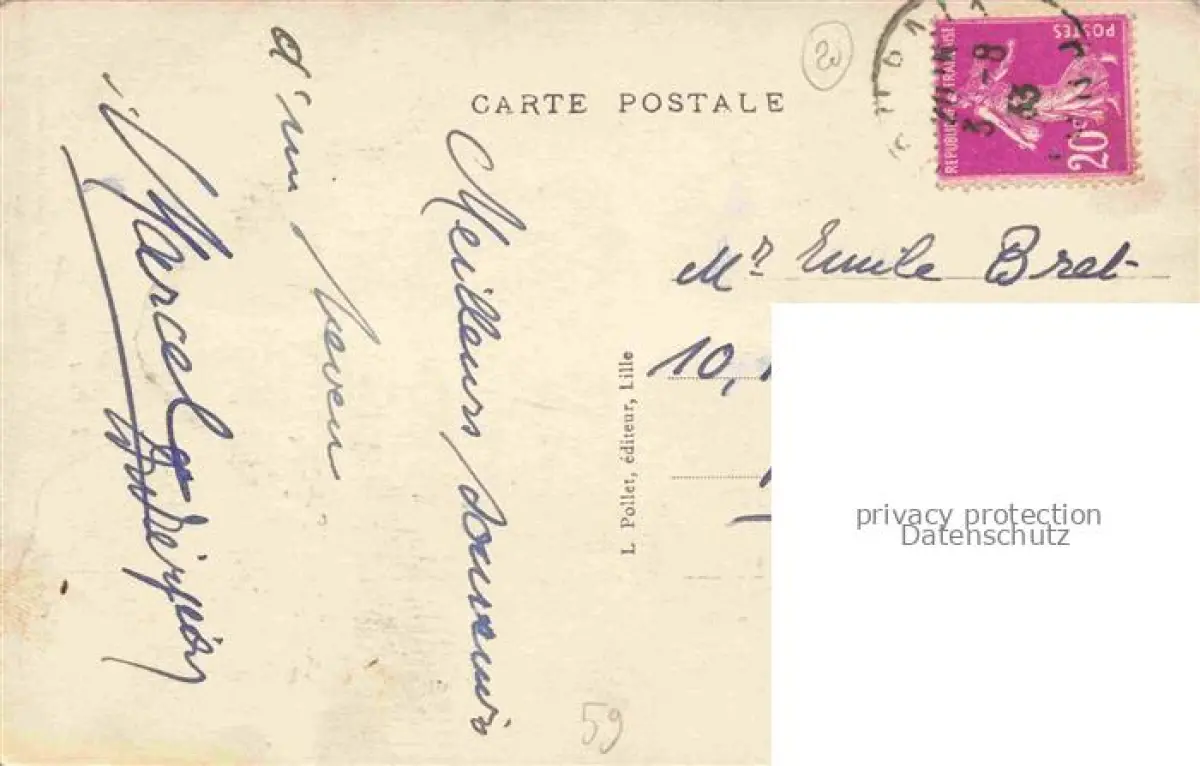 CARTE POSTALE
20
REPUBLIQUE FRANÇAISE
POSTES
20c
3 - 8
33
Meilleurs souvenirs
d'un neveu
Marcel
Mr Emile Bret
10,
L. Pollet, éditeur, Lille
59
privacy protection
Datenschutz